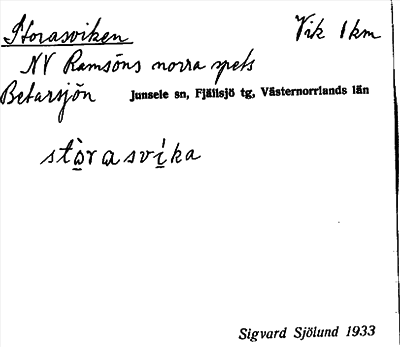 Storasviken Vik 1 km
NV Ramsöns norra spets
Betarsjön Junsele sn, Fjällsjö tg, Västernorrlands län
stò̱rasví̱ka
Sigvard Sjölund 1933